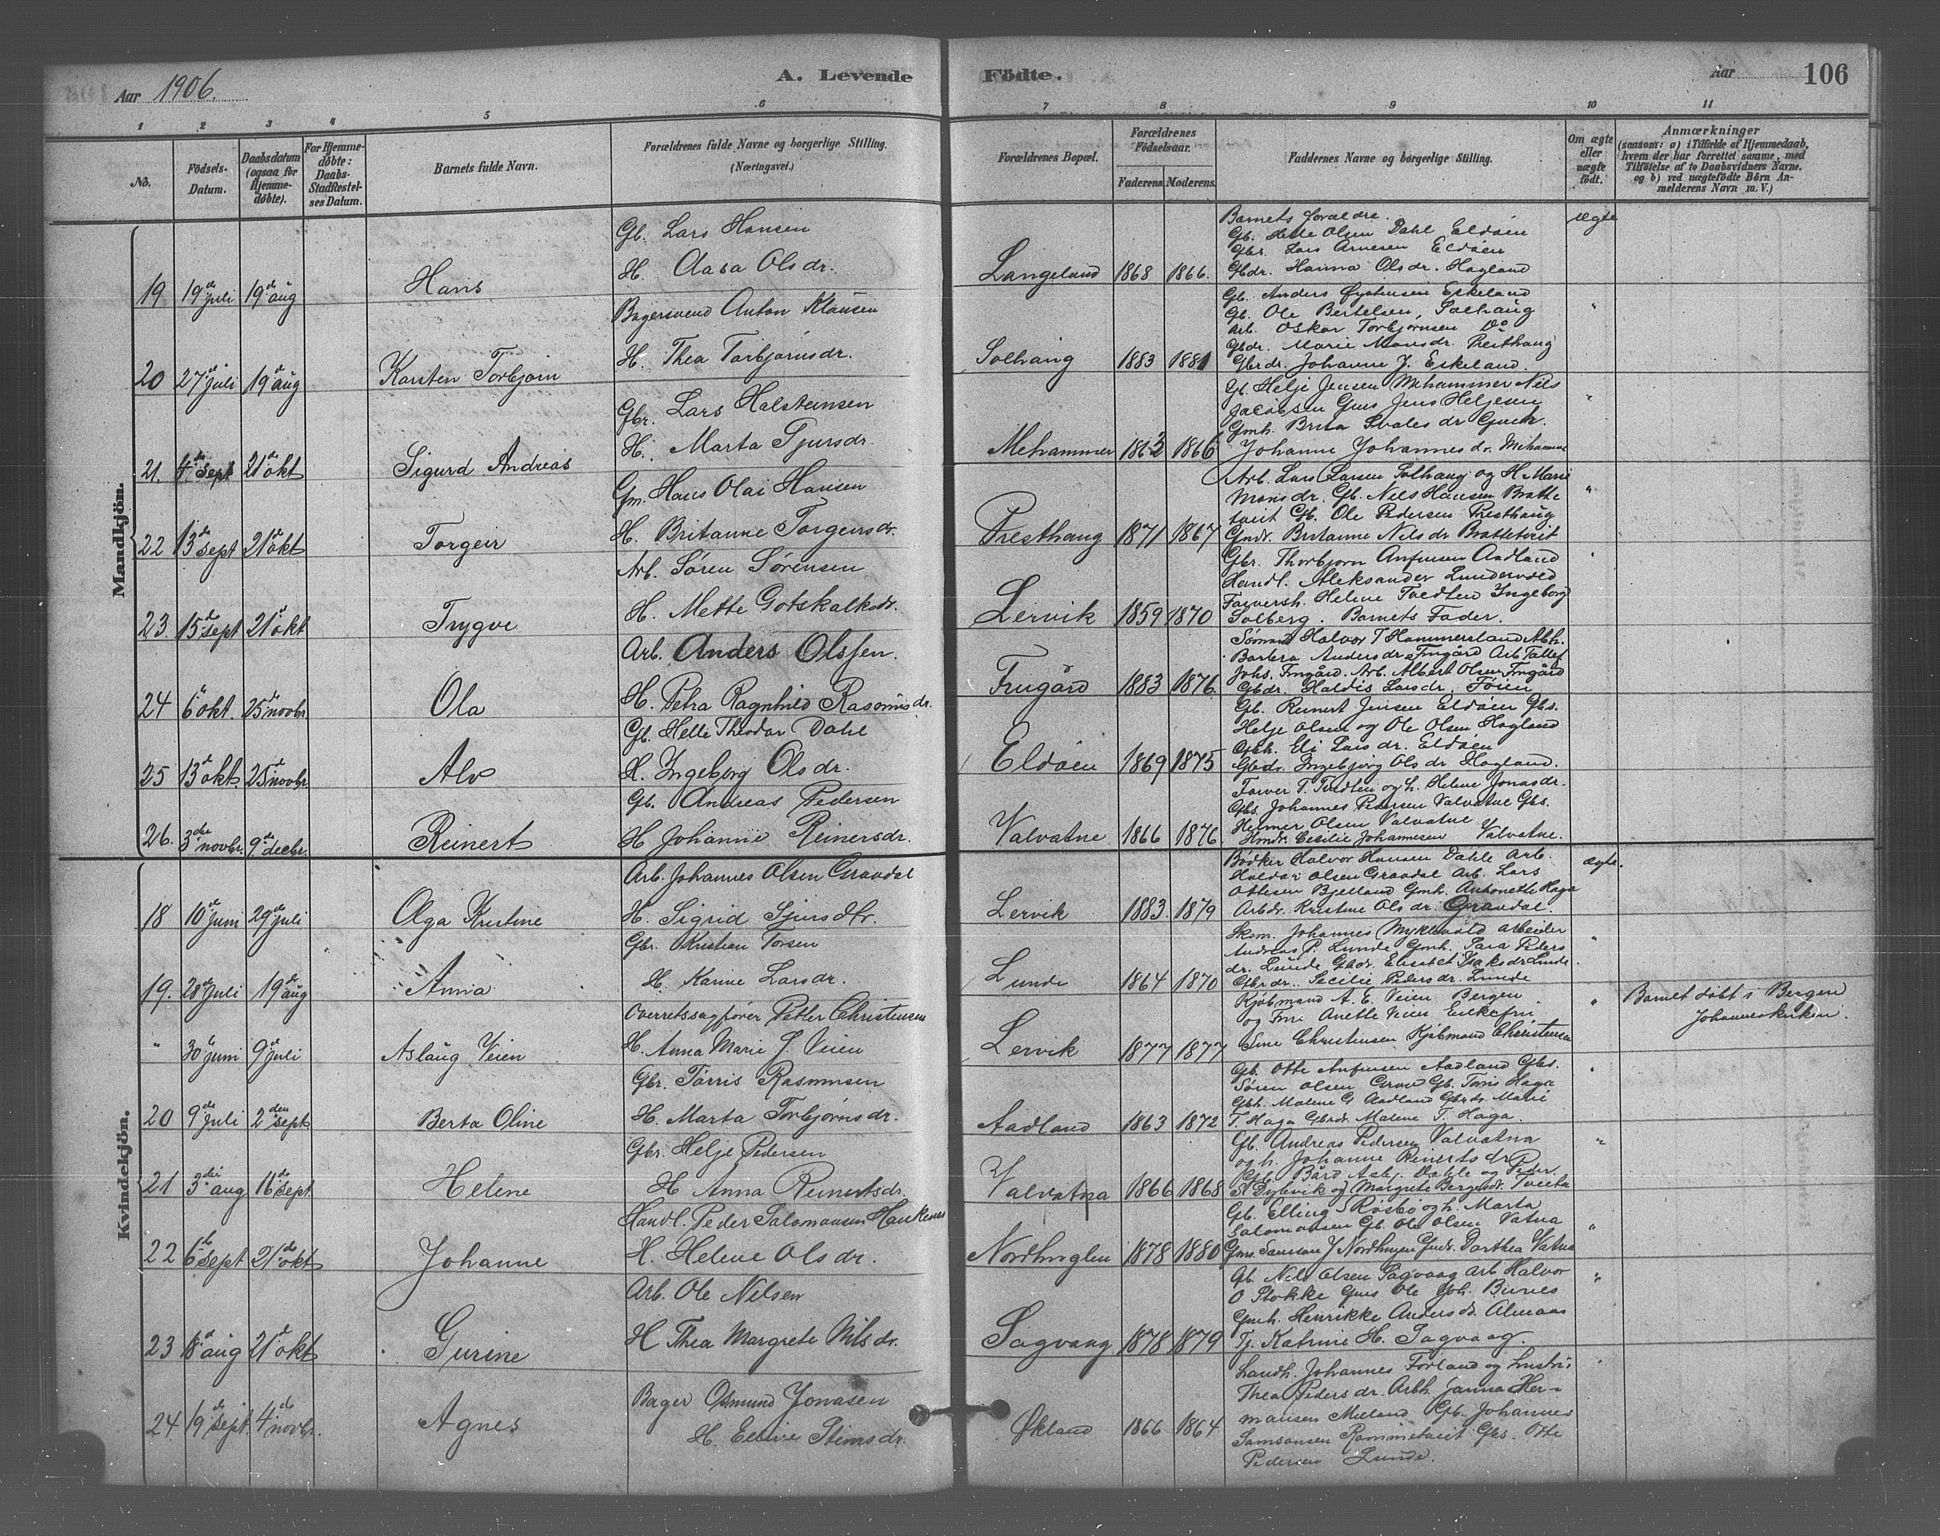 Aar 1906.
A. Levende
Födte.
Aar
106
1 2 3 4 5 6
7 8 9 10 11
No.
Födsels-
Datum.
Daabsdatum
(ogsaa for
Hjemme-
döbte).
For Hjemme-
döbte:
Daabs-
Stadfæstel-
ses Datum.
Barnets fulde Navn.
Forældrenes fulde Navne og borgerlige Stilling.
(Næringsvei.)
Forældrenes Bopæl.
Forældrenes
Födselsaar.
Faderens. Moderens.
Faddernes Navne og borgerlige Stilling.
Om ægte
eller
uægte
födt.
Anmærkninger
(saasom: a) i Tilfælde af Hjemmedaab,
hvem der har forrettet samme, med
Tilföielse af to Daabsvidners Navne,
og b) ved uægtefödte Börn An-
melderens Navn m. V.)
Mandkjön.
19 19de juli 19de aug Hans
Gb. Lars Hansen
H. Aasa Olsdr.
Langeland 1868 1866.
Barnets forældre.
Gb. Helle Olsen Dahl Eldøen
Gbr. Lars Arnesen Eldøen
Gbdr. Hanna Olsdr. Hagland
ægte
20 27de juli 19de aug Karsten Torbjørn
Bagersvend Anton Klausen
H. Thea Torbjørnsdr.
Solhaug 1883 1881
Gb. Anders Øystensen Eskeland
Gb. Ole Bertelsen, Solhaug
Arb. Oskar Torbjørnsen Do
Gbdr. Marie Monsdr. Presthaug
Gbrdr. Johanne J. Eskeland
"
21. 4de sept 21de okt Sigurd Andreas
Gbr. Lars Halsteinsen
H. Marta Sjursdr.
Mehammer 1863 1866
Gb. Helje Jensen Mehammer Nils
Jacobsen Gms Jens Heljesen
Gmh. Brita
Johanne Johannesdr. Mehammer
"
22 13de sept 21de okt Torgeir
Gm. Hans Olai Hansen
H. Britanne Torgeirsdr.
Presthaug 1871 1867
Arb. Lars Larsen Solhaug og H. Marie
Monsdr. Gb. Nils Hansen Bratte
tveit Gb. Ole Pedersen Presthaug
Gmdr. Britanne Nilsdr Bratteteveit
"
23. 15de sept 21de okt Trygve
Arb. Søren Sørensen
H. Mette Gotskalksdr.
Lervik 1859 1870
Gbr. Thorbjørn Anfinsen Aadland
Handl. Aleksander Lundervold
Farversh. Helene Tvedten Ingeborg
Solberg. Barnets Fader.
24 6de okt. 25de novbr Ola
Arb. Anders Olssen.
H. Petra Ragnhild Rasmusdr.
Frugård 1883 1876.
Halvor T Hammersland Abh.
Barbra Andersdr Frugård Arb Tollef
Johs. Frugård. Arb. Albert Olsen Frugård
Gbdr. Haldis Larsdr. Føien
25 13de okt. 25de novbr. Alv
Gb. Helle Theodor Dahl
H. Ingeborg Olsdr.
Eldøen 1869 1875
Gb. Reinert Jensen Eldøen Gbs.
Helje Olsen og Ole Olsen Hagland
Gbh. Eli Larsdr. Eldøen
Gbdr. Ingebjorg Olsdr Hagland.
26. 3die novbr. 9de decbr. Reinert
Gb. Andreas Pedersen
H Johanne Reinersdr.
Valvatne 1866 1876
Farver T. Tvedten og h. Helene Jonasdr.
Gbs. Johannes Pedersen Valvatne Gbs.
Helmer Olsen Valvatne
Hmdr. Cecilie Johannesen Valvatne.
Kvindekjön.
18 10de juni 29de juli Olga Kristine
Arb. Johannes Olsen Gravdal
H. Sigrid Sjursdtr.
Lervik 1883. 1879
Bødker Halvor Hansen Dahle Arb.
Haldor Olsen Gravdal Arb. Lars
Ottesen Bjelland Gmh. Anthonette Haga
Arbdr. Kristine Olsdr. Gravdal.
ægte.
19. 28de juli 19de aug Anna
Gbr. Kristian Torsen
H. Karine Larsdr.
Lunde 1864 1870
Skom. Johannes Myklevold Arbeider
Andreas P. Lunde Gmh. Sara Peders
dr. Lunde Gbdr. Elisabet Isaksdr Lunde.
Gbrdr. Secilie Pedersdr. Lunde
"
" 30te juni 9de juli Aslaug Veien
Overretssagfører Petter Christensen
H. Anna Marie J. Veien
Lervik 1877 1877
Kjøbmand A. E. Veien Bergen
og Fru Anette Veien Enkefru
Sine Christensen Kjøbmand Christensen
"
Barnet døbt i Bergen
Johanneskirken.
20 9de juli 2den sept Berta Oline
Gbr. Tørris Rasmusen
H. Marta Torbjørnsdr.
Aadland 1863 1872
Gb. Otte Anfinsen Aadland Gbs.
Søren Olsen Gb. Tørris Haga
Gbh. Malene G Aadland Gbrds. Marie
T. Haga Gbrdr. Malene T. Haga.
"
21 3die aug 16de sept Helene
Gbr. Helje Pedersen
H Anna Reinertsdr.
Valvatna 1866 1868
Gb. Andreas Pedersen Valvatna
og h. Johanne Reinertsdr
Gbr Bård Dahle og Peder
Margrete Bergesdr. Tveita
"
22 6te sept 21de okt Johanne
Handl. Peder Salomonsen Haukenes
H. Helene Olsdr.
Nordhuglen 1878 1880
Gb. Elling Røsbø og h. Marta
Salomonsen Gb. Ole Olsen Vatna
Gms Samson J Nordhuglen Gmdr. Dorthea Vatna
"
23 18de aug 21de okt Gurine
Arb. Ole Nilsen
H Thea Margrete Nilsdr.
Sagvaag 1878 1879
Gb. Nils Olsen Sagvaag Arb Halvor
O Stokke Gms Ole Joh. Bunes
Gmh. Henrikke Andersdr. Almaas
Tj. Katrine H. Sagvaag.
"
24 19de sept. 4de novbr. Agnes
Bager Osmund Jonasen
H. Elline Steinsdr.
Økland 1866 1864
Landh. Johannes Førland og hustru
Thea Pedersdr. Arbh Janna Her-
mansen Meland Gb. Johannes
Samsonsen Rommetveit Gbs. Otte
Pedersen Lunde.